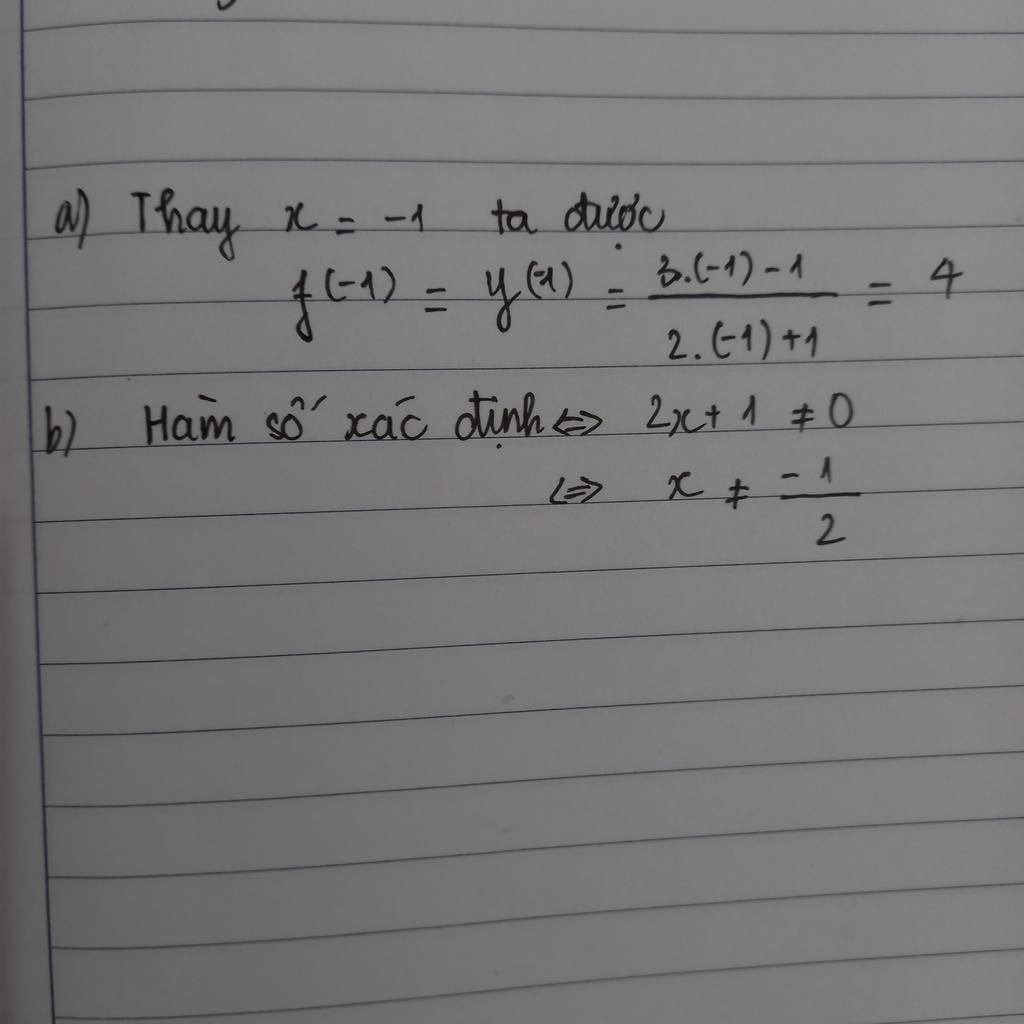 a) Thay x = -1 ta được
f(-1) = y(-1) = \frac{3.(-1) - 1}{2.(-1) + 1} = 4
b) Hàm số xác định <=> 2x + 1 ≠ 0
<=> x ≠ \frac{-1}{2}